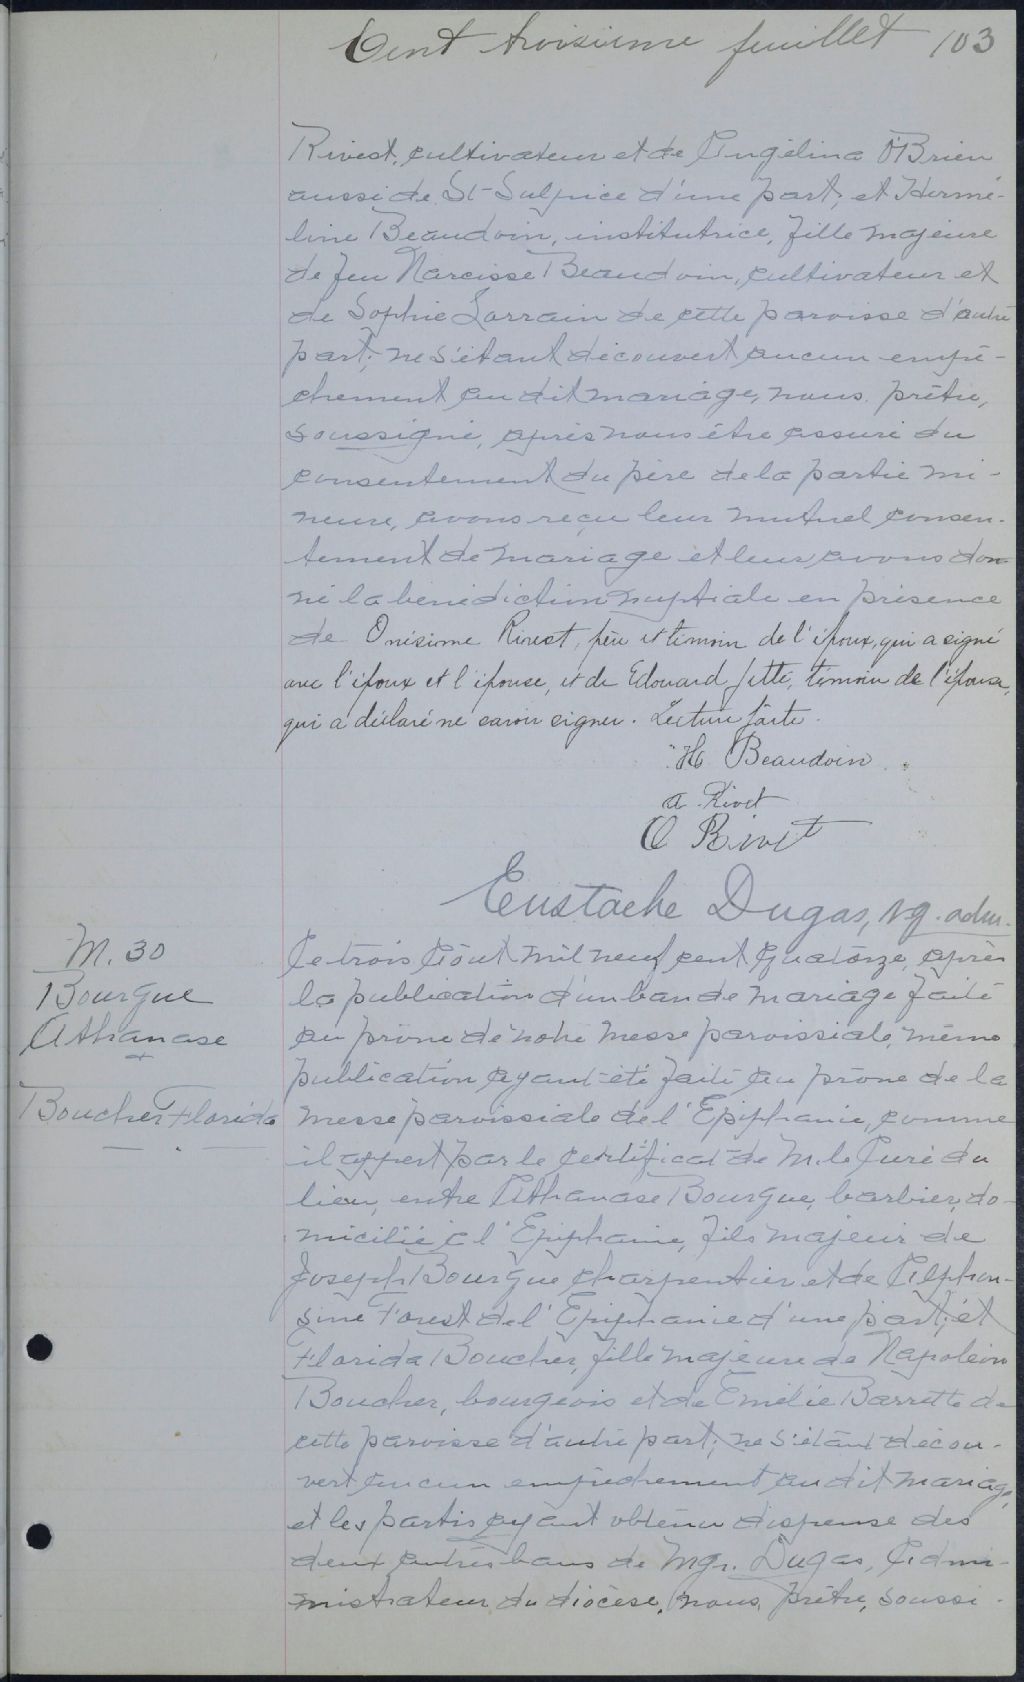 Cent troisième feuillet 103
Rivest, cultivateur et de Angélina O'Brien
aussi de St-Sulpice d'une part, et Hermé-
line Beaudoin, institutrice, fille majeure
de feu Narcisse Beaudoin, cultivateur et
de Sophie Lorrain de cette paroisse d'autre
part; ne s'étant découvert aucun empê-
chement au dit mariage, nous, prêtre,
soussigné, après nous être assuré du
consentement du père de la partie mi-
neure, avons reçu leur mutuel consen-
tement de mariage et leur avons don-
né la bénédiction nuptiale en présence
de Onésime Rivest, père et témoin de l'époux, qui a signé
avec l'époux et l'épouse, et de Edouard Jetté, témoin de l'épouse,
qui a déclaré ne savoir signer. Lecture faite.
H Beaudoin
A. Rivet
O Rivet
Eustache Dugas, v.g. adm.
M. 30
Bourgue
Athanase
+
Boucher Florida
Le trois Août mil neuf cent quatorze, après
la publication d'un ban de mariage faite
au prône de notre messe paroissiale, même
publication ayant été faite au prône de la
messe paroissiale de l'Epiphanie, comme
il appert par le certificat de M. le Curé du
lieu, entre Athanase Bourgue, barbier, do-
micilié à l'Epiphanie, fils majeur de
Joseph Bourgue charpentier et de Alphon-
sine Forest de l'Epiphanie d'une part, et
Florida Boucher, fille majeure de Napoléon
Boucher, bourgeois et de Emélie Barrette de
cette paroisse d'autre part; ne s'étant décou-
vert aucun empêchement au dit mariage,
et les partis ayant obtenu dispense des
deux autres bans de Mgr. Dugas, Admi-
nistrateur du diocèse, nous, prêtre, soussi-